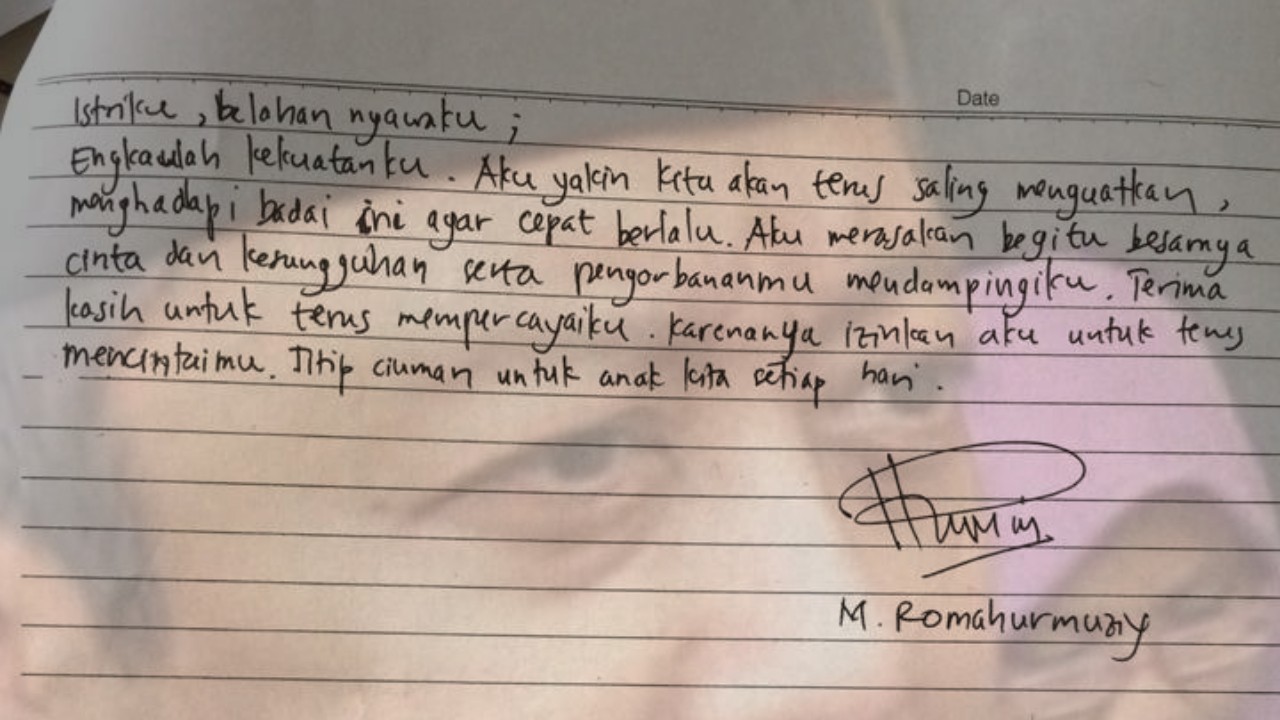 Date
Istriku, belahan nyawaku ;
Engkaulah kekuatanku. Aku yakin kita akan terus saling menguatkan,
menghadapi badai ini agar cepat berlalu. Aku merasakan begitu besarnya
cinta dan kesungguhan serta pengorbananmu mendampingiku. Terima
kasih untuk terus mempercayaiku. Karenanya izinkan aku untuk terus
mencintaimu. Titip ciuman untuk anak kita setiap hari.
M. Romahurmuziy